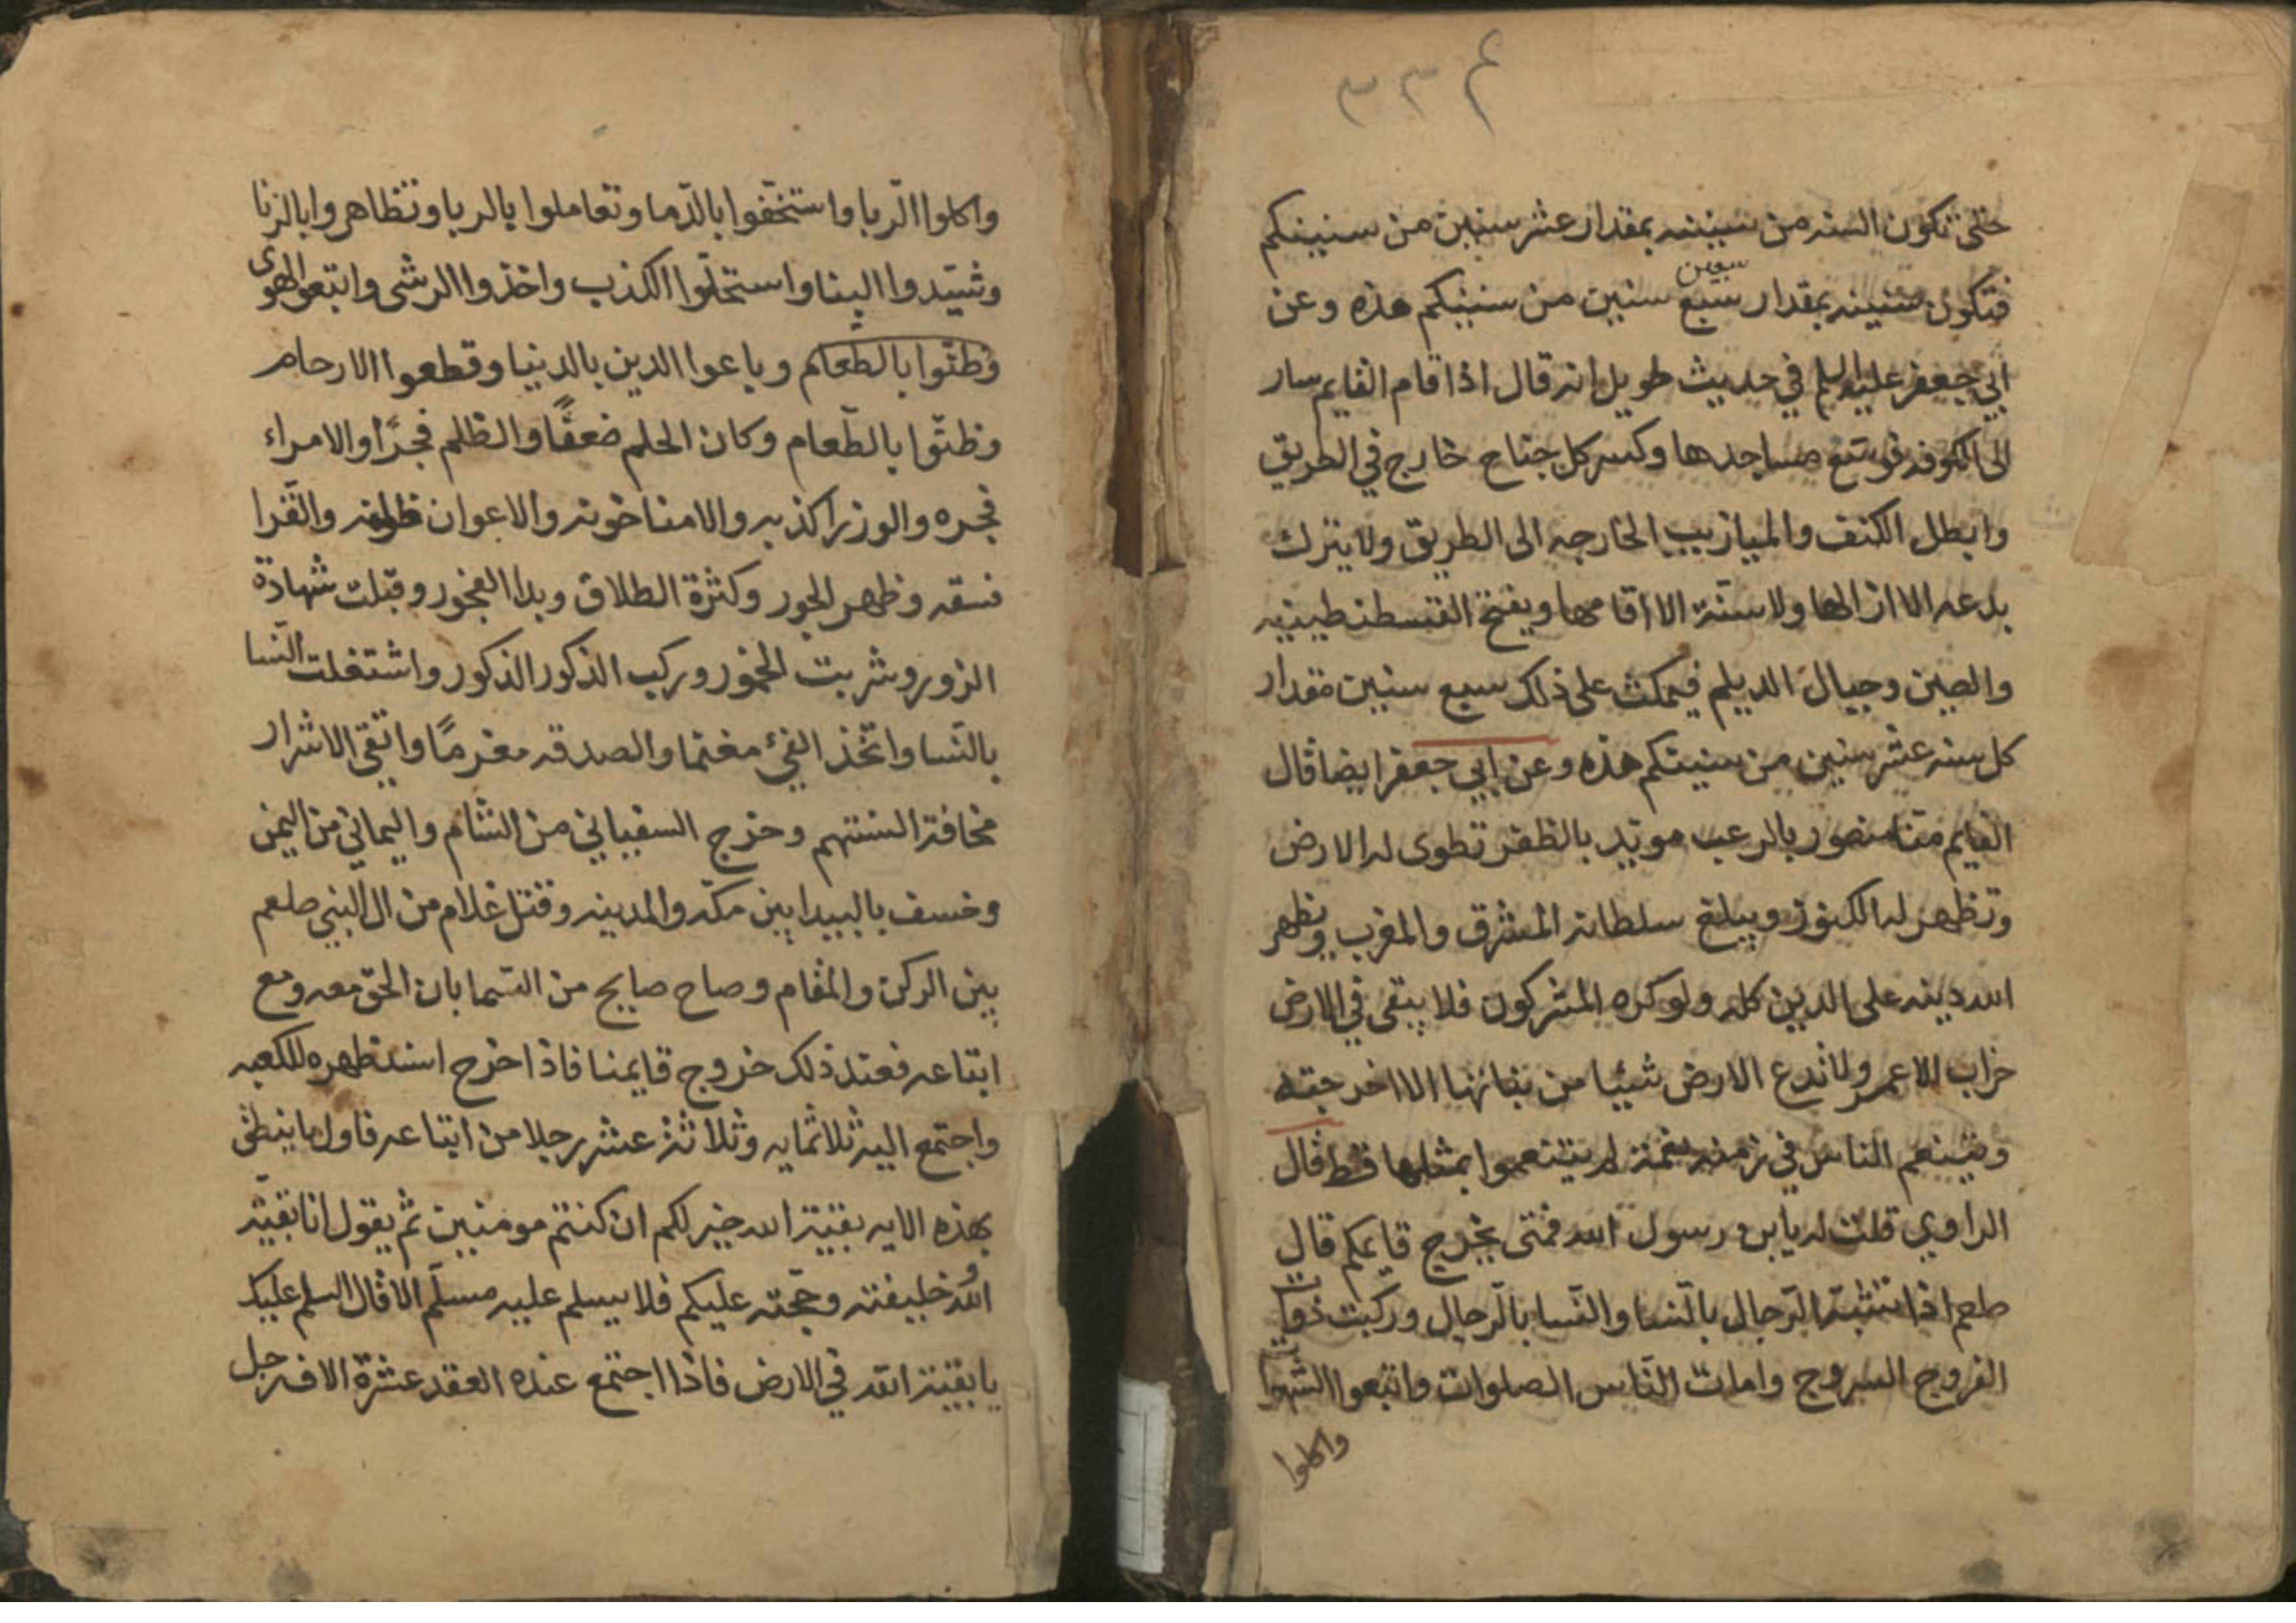 ٣٣٤
حتى تكون السنه من سنينه بمقدار عشر سنين من سنينكم
سبعين
فتكون سنينه بمقدار سبع سنين من سنينكم هذه وعن
ابي جعفر عليه السلم في حديث طويل انه قال اذا قام القايم سار
الى الكوفه فوسّع مساجدها وكسر كل جناح خارج في الطريق
وابطل الكنف والميازيب الخارجه الى الطريق ولا يترك
بدعه الا ازالها ولا سنّة الا اقامها ويفتح القسطنطينيه
والصين وجبال الديلم فيمكث على ذلك سبع سنين مقدار
كل سنه عشر سنين من سنينكم هذه وعن ابي جعفر ايضا قال
القايم منّا منصور بالرعب مويّد بالظفر تطوى له الارض
وتظهر له الكنوز ويبلغ سلطانه المشرق والمغرب ويظهر
الله دينه على الدين كله ولو كره المشركون فلا يبقى في الارض
خراب الا عمر ولا تدع الارض شيئا من نباتها الا اخرجته
ويتنعم الناس في زمنه نعمة لم يتنعموا بمثلها قط قال
الراوي قلت له يابن رسول الله فمتى يخرج قايمكم قال
صلعم اذا تشبّه الرّجال بالنّسا والنّسا بالرّجال وركبت ذوات
الفروج السروج وامات النّاس الصلوات واتبعوا الشهوات
واكلوا
واكلوا الرّبا واستخفّوا بالدّما وتعاملوا بالربا وتظاهروا بالزنا
وشيّدوا البنا واستحلّوا الكذب واخذوا الرشى واتبعوا الهوى
وظنّوا بالطعام وباعوا الدين بالدنيا وقطعوا الارحام
وظنّوا بالطّعام وكان الحلم ضعفًا والظلم فجرًا والامراء
فجره والوزرا كذبه والامنا خونه والاعوان ظلمه والقرّا
فسقه وظهر الجور وكثرة الطلاق وبدا الفجور وقبلت شهادة
الزور وشربت الخمور وركب الذكور الذكور واشتغلت النّسا
بالنّسا واتخّذ الفيّ مغنما والصدقه مغرمًا واتقي الاشرار
مخافة السنتهم وخرج السفياني من الشام واليماني من اليمن
وخسف بالبيدا بين مكّه والمدينه وقتل غلام من ال النبي صلعم
بين الركن والمقام وصاح صايح من السّما بان الحق معه ومع
اتباعه فعند ذلك خروج قايمنا فاذا خرج اسند ظهره للكعبه
واجتمع اليه ثلاثمايه وثلاثة عشر رجلا من اتباعه فاول ما ينطق
بهذه الايه بقيّة الله خير لكم ان كنتم مومنين ثم يقول انا بقيّة
الله وخليفته وحجّته عليكم فلا يسلم عليه مسلّم الا قال السلم عليك
يا بقيّة الله في الارض فاذا اجتمع عنده العقد عشرة الاف رجل